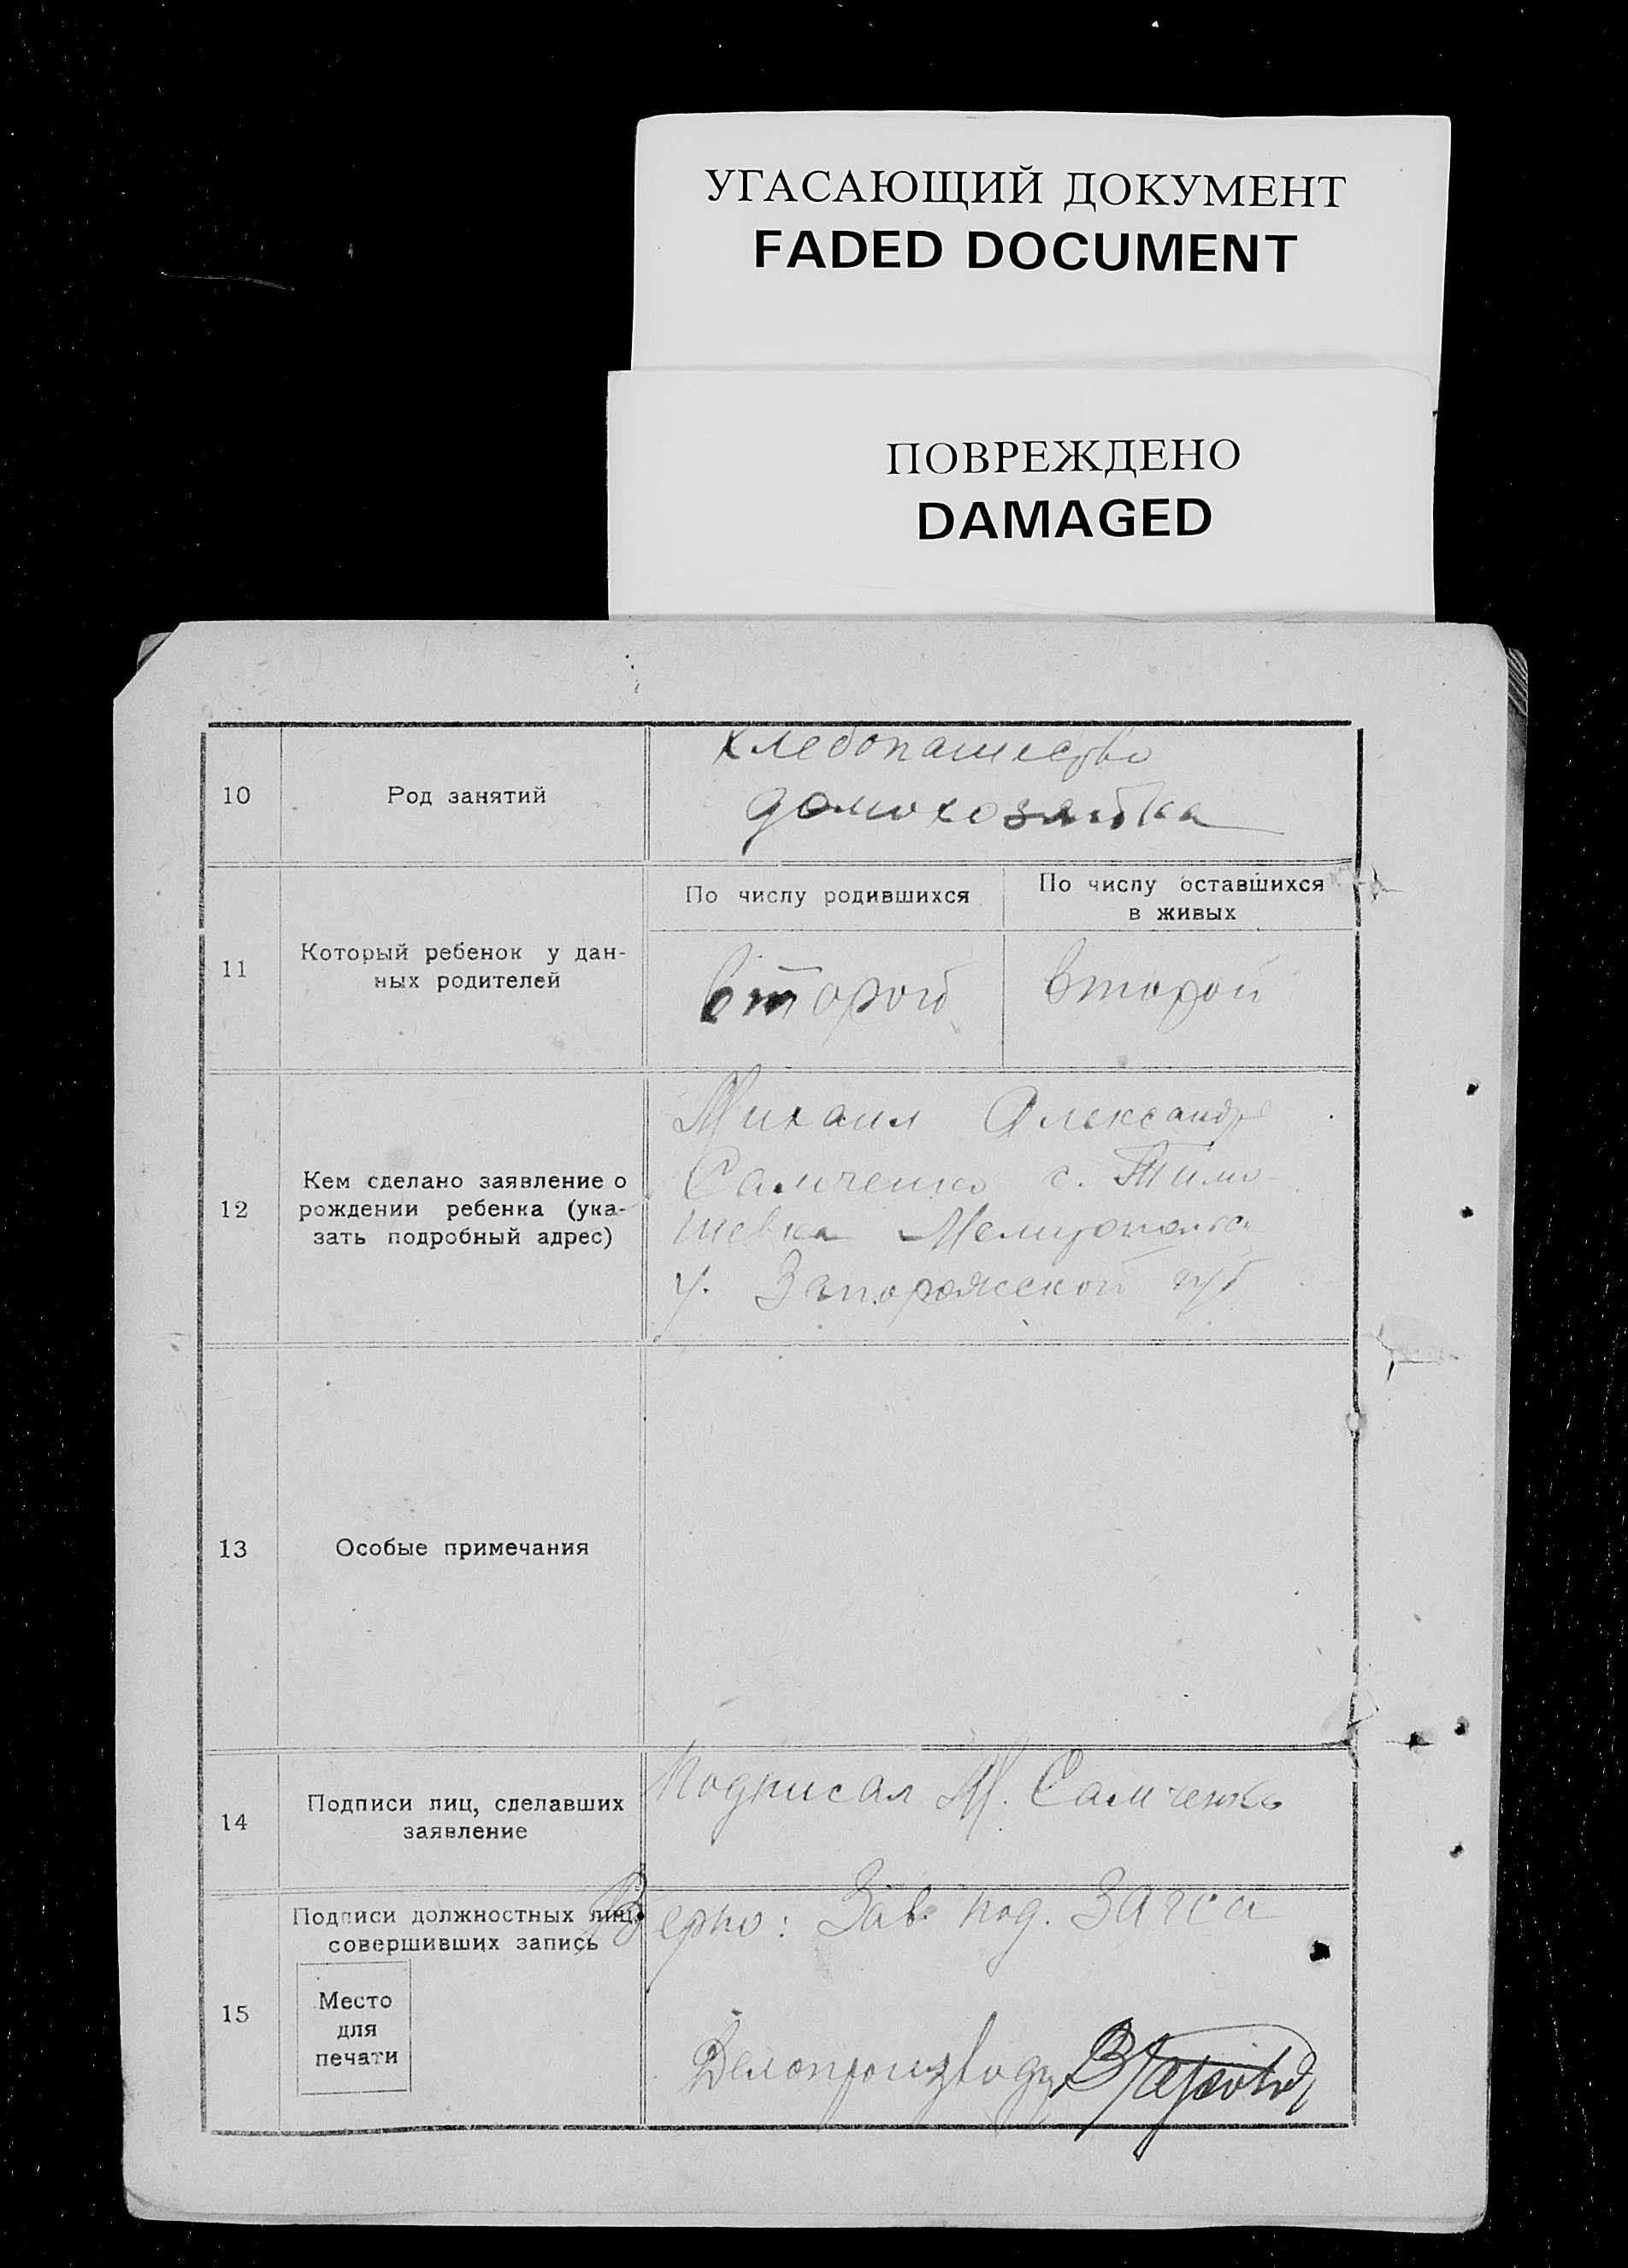 УГАСАЮЩИЙ ДОКУМЕНТ
FADED DOCUMENT
ПОВРЕЖДЕНО
DAMAGED
10
Род занятий
Хлебопашество
домохозяйка
11
Который ребенок у дан-
ных родителей
По числу родившихся
По числу оставшихся
в живых
второй
второй
12
Кем сделано заявление о
рождении ребенка (ука-
зать подробный адрес)
Михаил Александр
Самченко с. Тимо-
шевка Мелитопольск
у. Запорожской губ
13
Особые примечания
14
Подписи лиц, сделавших
заявление
Подписал М. Самченко
15
Подписи должностных лиц,
совершивших запись
Место
для
печати
Верно: Зав. под. Загса
Делопроизвод